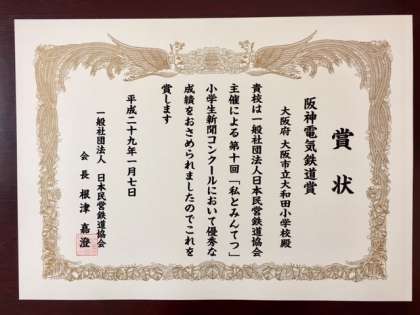 賞状
阪神電気鉄道賞
大阪府 大阪市立大和田小学校殿
貴校は一般社団法人日本民営鉄道協会
主催による第十回「私とみんてつ」
小学生新聞コンクールにおいて優秀な
成績をおさめられましたのでこれを
賞します
平成二十九年一月七日
一般社団法人 日本民営鉄道協会
会長 根津嘉澄